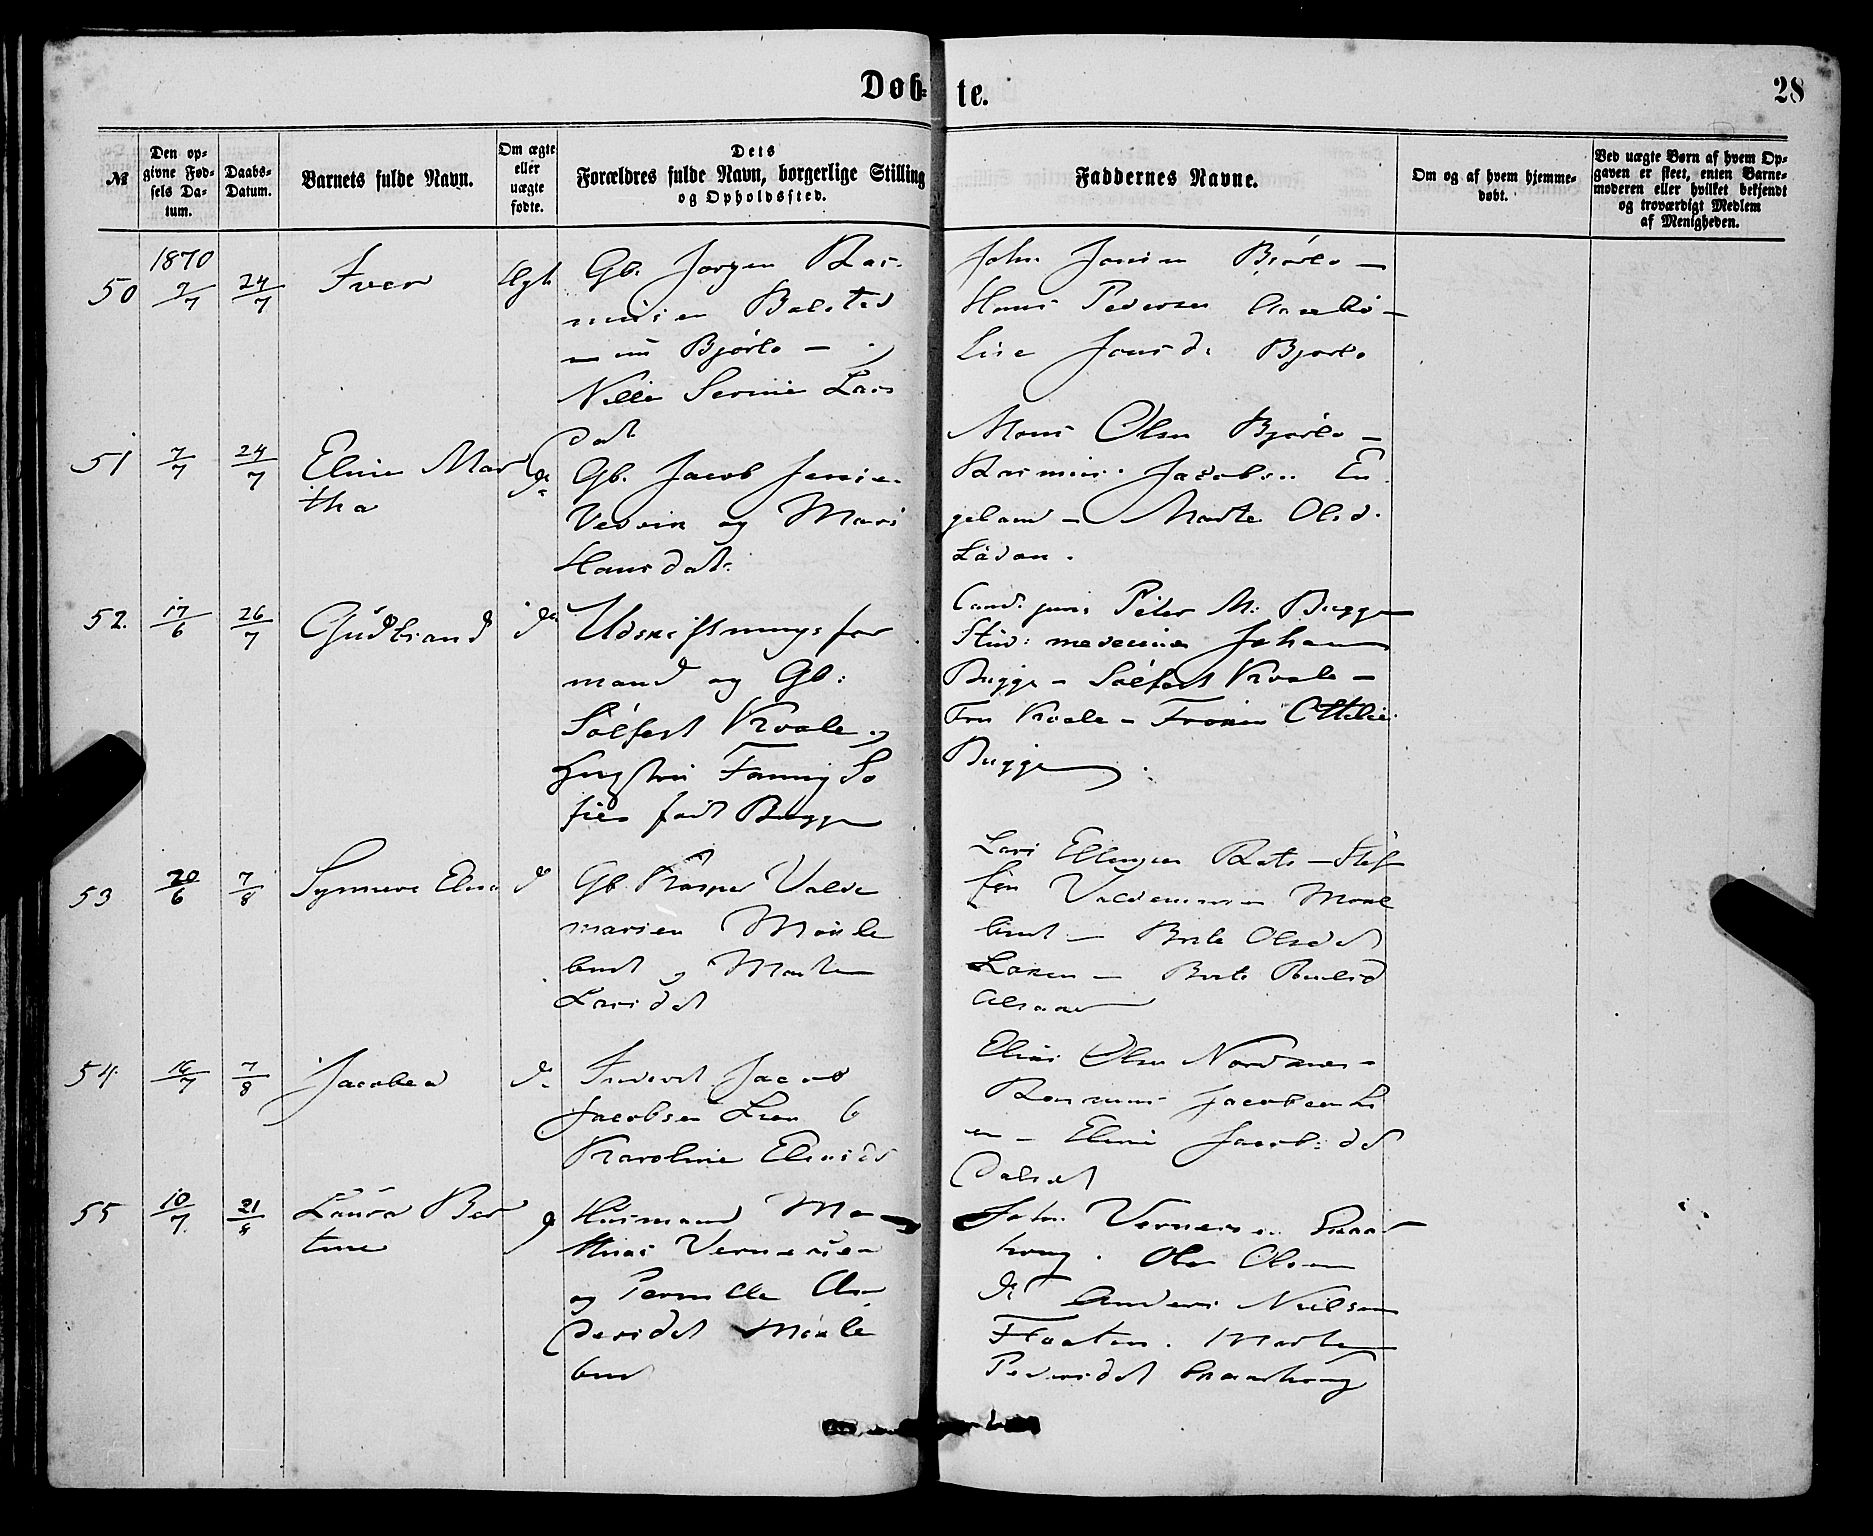 Døb= te.
28
№
Den op=
givne Fød=
sels Da=
tum.
Daabs=
Datum.
Barnets fulde Navn.
Om ægte
eller
uægte
fødte.
Dets
Forældres fulde Navn, borgerlige Stilling
og Opholdssted.
Faddernes Navne.
Om og af hvem hjemme=
døbt.
Ved uægte Børn af hvem Op=
gaven er skeet, enten Barne=
moderen eller hvilket bekjendt
og troværdigt Medlem
af Menigheden.
1870
50 7/7 24/7 Iver Ægt
Gb. Jørgen Ras-
musen
nu Bjørlo –
Nille Serine Lars
dat
John Bjørlo –
Hans Pedersen
Lise Jonsd. Bjørlo
51 7/7 24/7 Eline Mar
tha
do
Gb. Jacob
Vedvik og Mari
Hansdat.
Mons Olsen Bjørlo –
Rasmus Jacobsen En
geland – Marte Olsd.
52. 17/6 26/7 Gudbrand do
Udskiftningsfor
mand og Gb:
Sølfest Kvale og
Hustru Fanny So
fie født Bugge
Cand. juris Peter M. Bugge
Stud: medecine Johan
Bugge – Sølfest Kvale –
Fru Kvale – Frøken Ottilie
Bugge.
53 20/6 7/8 Synneve Elisa d
Gb. Kasper Valde
marsen Maule
bust og Marthe
Larsdat
Lars Ellingsen – Stef
fen Valdemarsen Maul
bust – Brite Olsdat
– Brite
54. 16/7 7/8 Jacobea do
Jacob
Jacobsen Lien &
Karoline Eliasd
Elias Olsen Nordnes –
Rasmus Jacobsen Li
en – Eline Jacobsdt
Dalsæt
55 10/7 21/8 Laura Ber
tine
d
Husmand Ma
thias Vernersen
og Pernille An
dersdat Maule
bust
John Vernersen
. Ole Olsen
do Anders Nielsen
Floten. Marthe
Pedersdat